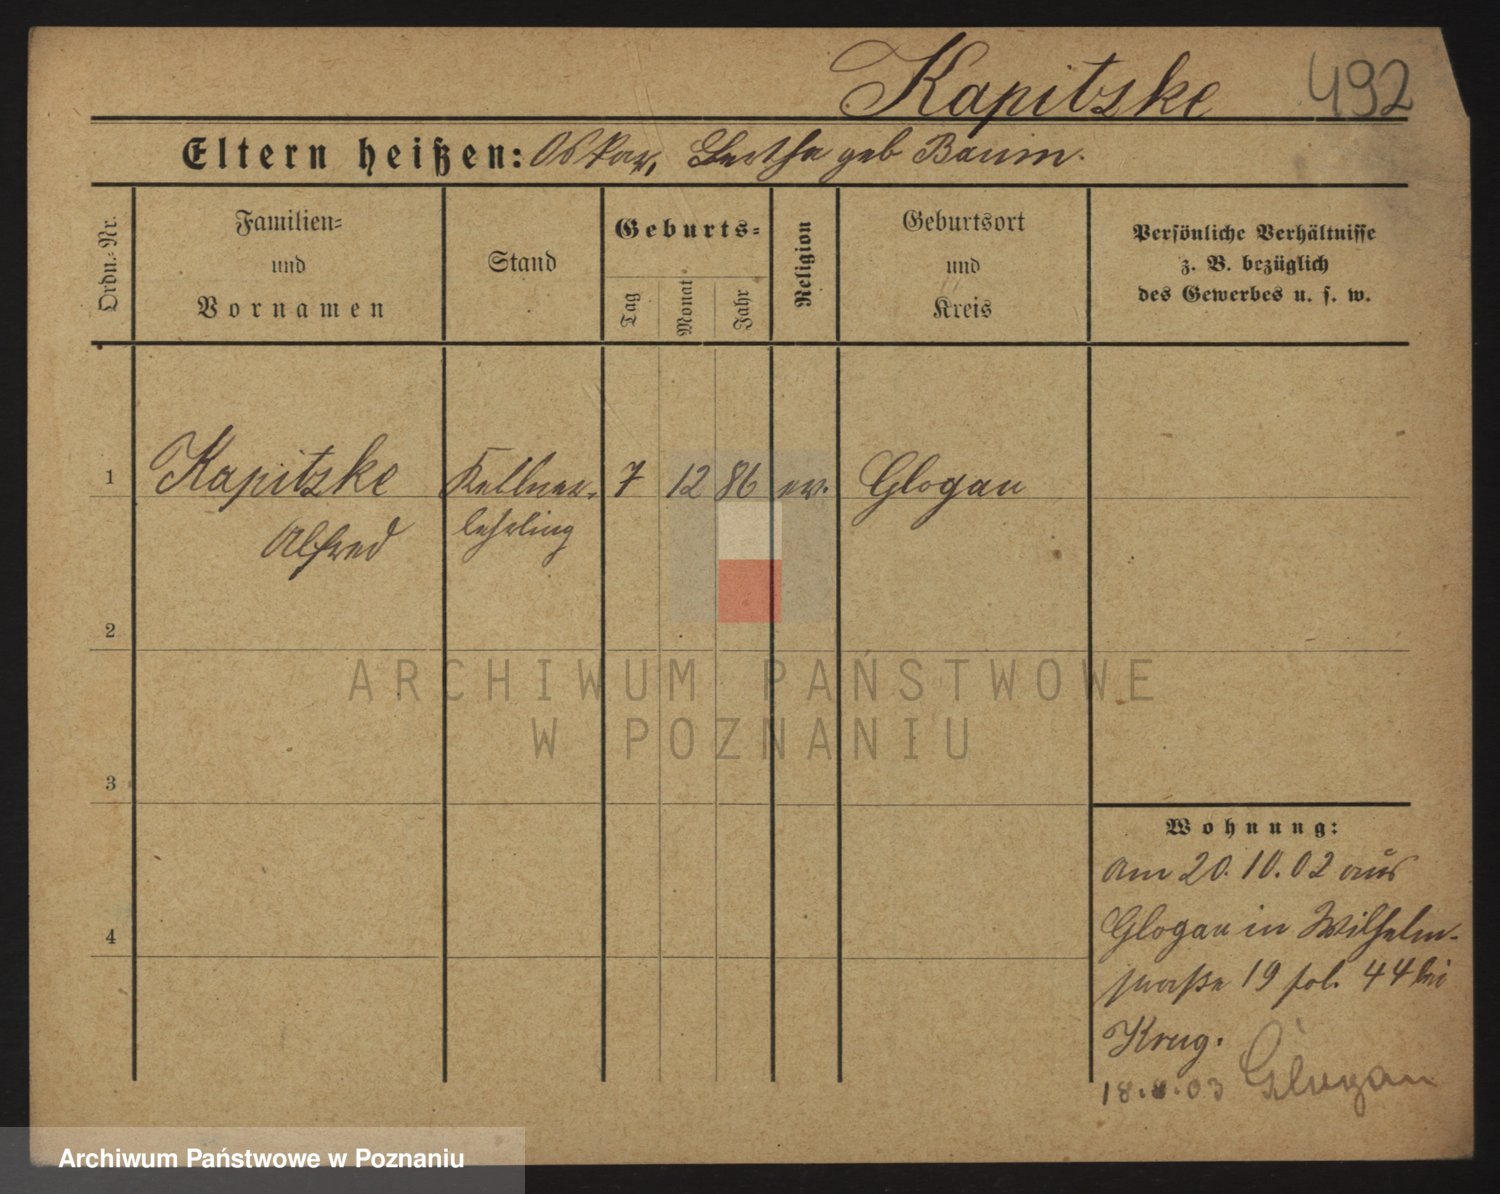 Kapitzke 492
Eltern heißen: Oskar, Bertha geb Baum.
Ordn.-Nr.
Familien-
und
Vornamen
Stand
Geburts-
Tag
Monat
Jahr
Religion
Geburtsort
und
Kreis
Persönliche Verhältnisse
z. B. bezüglich
des Gewerbes u. s. w.
1 Kapitzke Kellner- 7 12 86 ev. Glogau
Alfred lehrling
2
ARCHIWUM PAŃSTWOWE
W POZNANIU
3
Wohnung:
am 20.10.02 aus
4 Glogau in Wilhelm-
straße 19 fol. 44 bei
Krug.
18. .03 Glogau
Archiwum Państwowe w Poznaniu